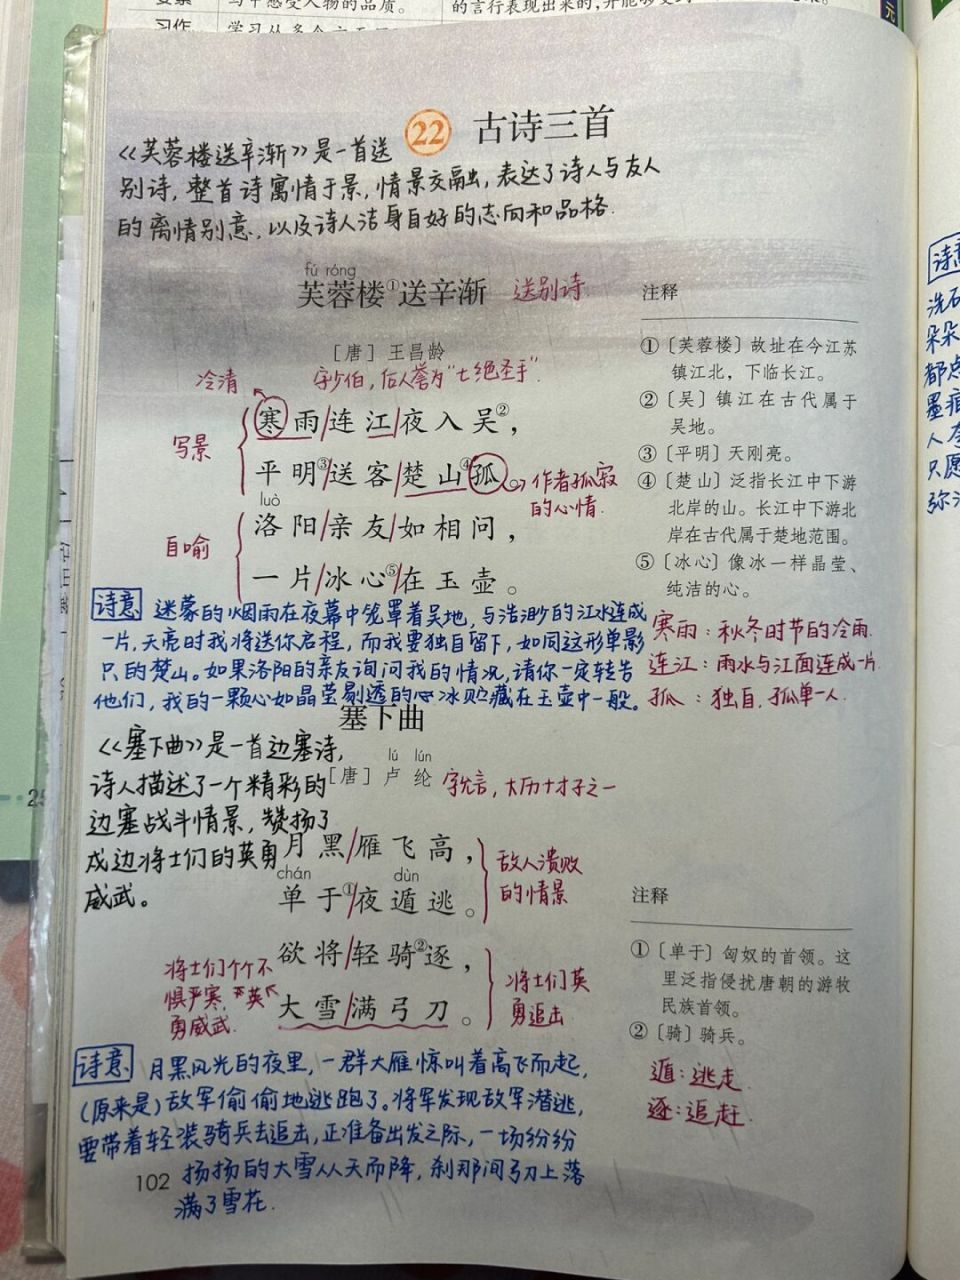 写中感受人物的品质。
习作
22 古诗三首
《芙蓉楼送辛渐》是一首送
别诗，整首诗寓情于景，情景交融，表达了诗人与友人
的离情别意，以及诗人洁身自好的志向和品格.
fú róng
芙蓉楼①送辛渐 送别诗
[唐] 王昌龄
字少伯，后人誉为“七绝圣手”.
冷清
写景
寒雨/连江/夜入吴②，
平明③/送客/楚山④孤。
作者孤寂
的心情.
自喻
luò
洛阳/亲友/如相问，
一片/冰心⑤/在玉壶。
注释
①〔芙蓉楼〕故址在今江苏
镇江北，下临长江。
②〔吴〕镇江在古代属于
吴地。
③〔平明〕天刚亮。
④〔楚山〕泛指长江中下游
北岸的山。长江中下游北
岸在古代属于楚地范围。
⑤〔冰心〕像冰一样晶莹、
纯洁的心。
诗意 迷蒙的烟雨在夜幕中笼罩着吴地，与浩渺的江水连成
一片，天亮时我将送你启程，而我要独自留下，如同这形单影
只的楚山。如果洛阳的亲友询问我的情况，请你一定转告
他们，我的一颗心如晶莹剔透的冰贮藏在玉壶中一般。
寒雨：秋冬时节的冷雨.
连江：雨水与江面连成一片.
孤：独自，孤单一人.
塞下曲
《塞下曲》是一首边塞诗，
诗人描述了一个精彩的
边塞战斗情景，赞扬了
戍边将士们的英勇
威武。
lú lún
[唐] 卢纶 字允言，大历十才子之一
月黑/雁飞高，
chán dùn
单于①/夜遁逃。
敌人溃败
的情景
欲将/轻骑②逐，
大雪/满弓刀。
将士们个个不
惧严寒，英
勇威武.
将士们英
勇追击
注释
①〔单于〕匈奴的首领。这
里泛指侵扰唐朝的游牧
民族首领。
②〔骑〕骑兵。
遁：逃走.
逐：追赶.
诗意 月黑风光的夜里，一群大雁惊叫着高飞而起，
(原来是)敌军偷偷地逃跑了。将军发现敌军潜逃，
要带着轻装骑兵去追击，正准备出发之际，一场纷纷
扬扬的大雪从天而降，刹那间弓刀上落
满了雪花.
102
诗意